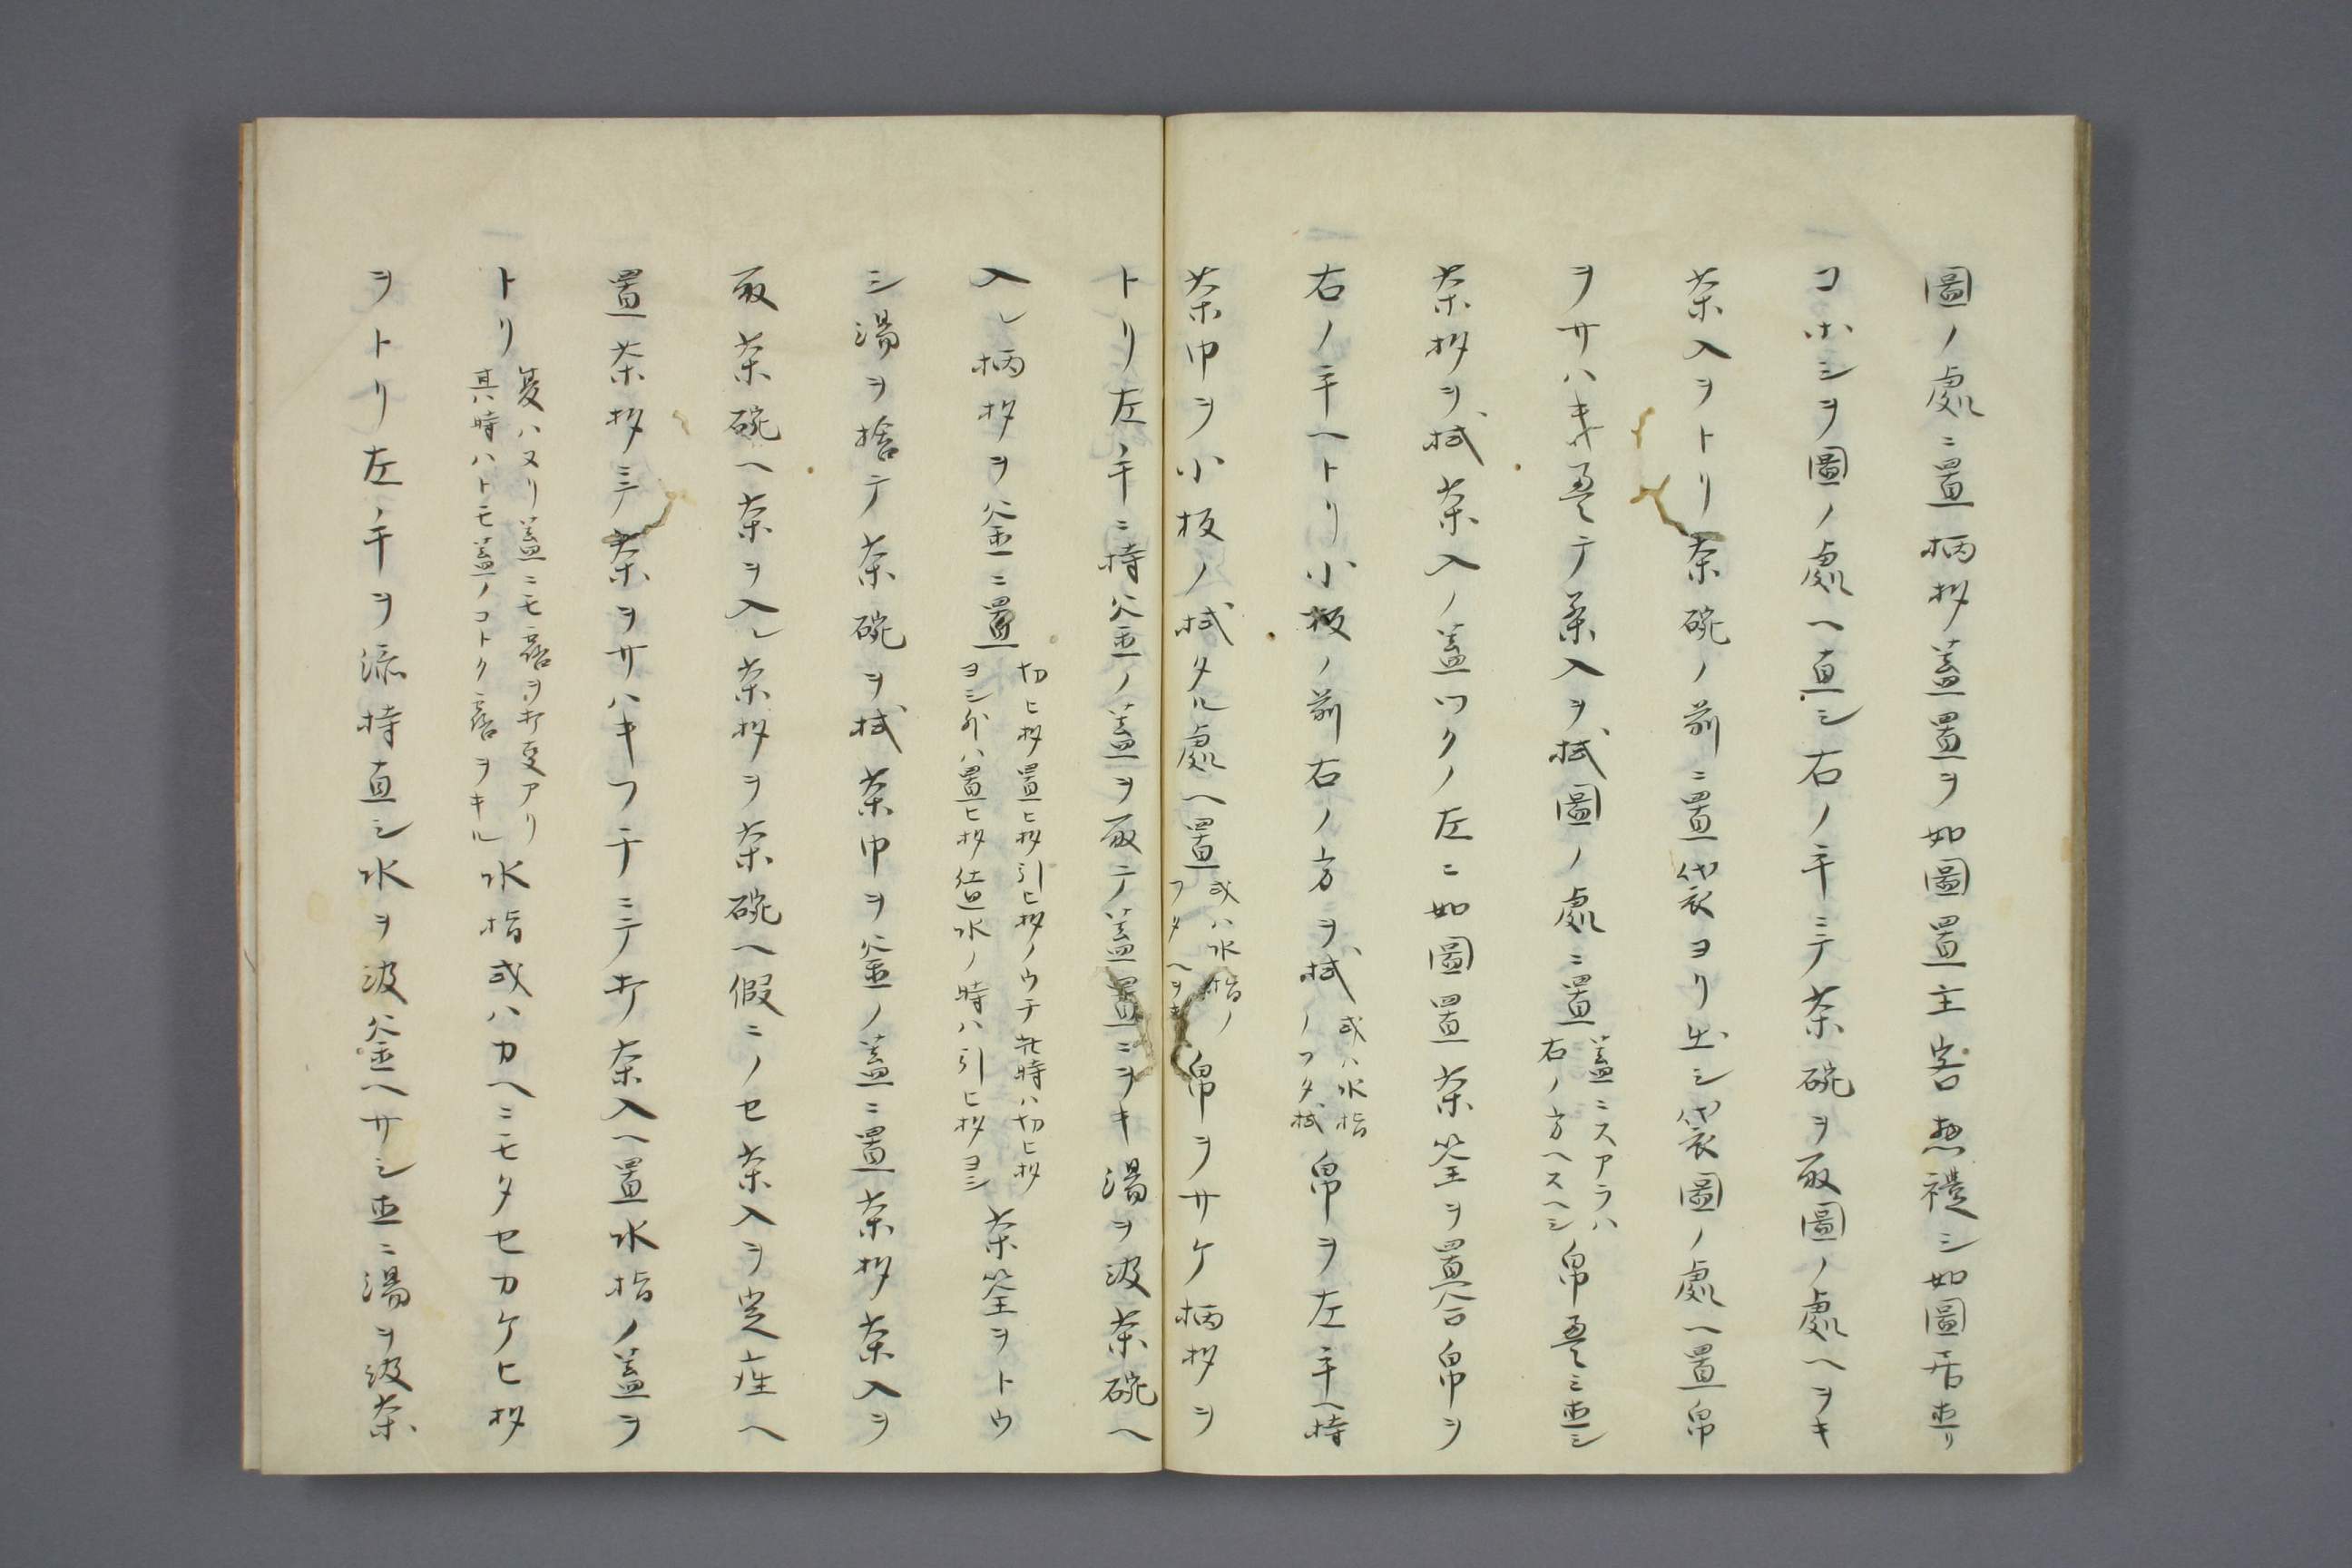 圖ノ處ニ置柄杓蓋置ヲ如圖置主客惣禮シ如圖居直リ
コホシヲ圖ノ處ヘ直シ右ノ手ニテ茶碗ヲ取圖ノ處ヘヲキ
茶入ヲトリ茶碗ノ前ニ置袋ヨリ出シ袋圖ノ處ヘ置帛
ヲサハキ疊テ茶入ヲ拭圖ノ處ニ置
蓋ニスアラハ
右ノ方ヘスヘシ
帛疊ミ直シ
茶杓ヲ拭茶入ノ蓋ツクノ左ニ如圖置茶筌ヲ置合帛ヲ
右ノ手ヘトリ小板ノ前右ノ方ヲ拭
或ハ水指
ノフタ拭
帛ヲ左手ヘ持
茶巾ヲ小板ノ拭タル處ヘ置
或ハ水指ノ
フタヘヲキ
帛ヲサケ柄杓ヲ
トリ左ノ手ニ持釜ノ蓋ヲ取テ蓋置ニヲキ湯ヲ汲茶碗ヘ
入レ柄杓ヲ釜ニ置
切ヒ杓置ヒ杓引ヒ杓ノウチ此時ハ切ヒ杓
ヨシ外ハ置ヒ杓仕迠水ノ時ハ引ヒ杓ヨシ
茶筌ヲトウ
シ湯ヲ捨テ茶碗ヲ拭茶巾ヲ釜ノ蓋ニ置茶杓茶入ヲ
取茶碗ヘ茶ヲ入レ茶杓ヲ茶碗ヘ假ニノセ茶入ヲ定座ヘ
置茶杓ニテ茶ヲサハキフチニテ打茶入ヘ置水指ノ蓋ヲ
トリ
夏ハヌリ蓋ニモ露ヲ打事アリ
其時ハトモ蓋ノコトク露ヲキル
水指或ハカヘニモタセカケヒ杓
ヲトリ左ノ手ヲ添持直シ水ヲ汲釜ヘサシ直ニ湯ヲ汲茶